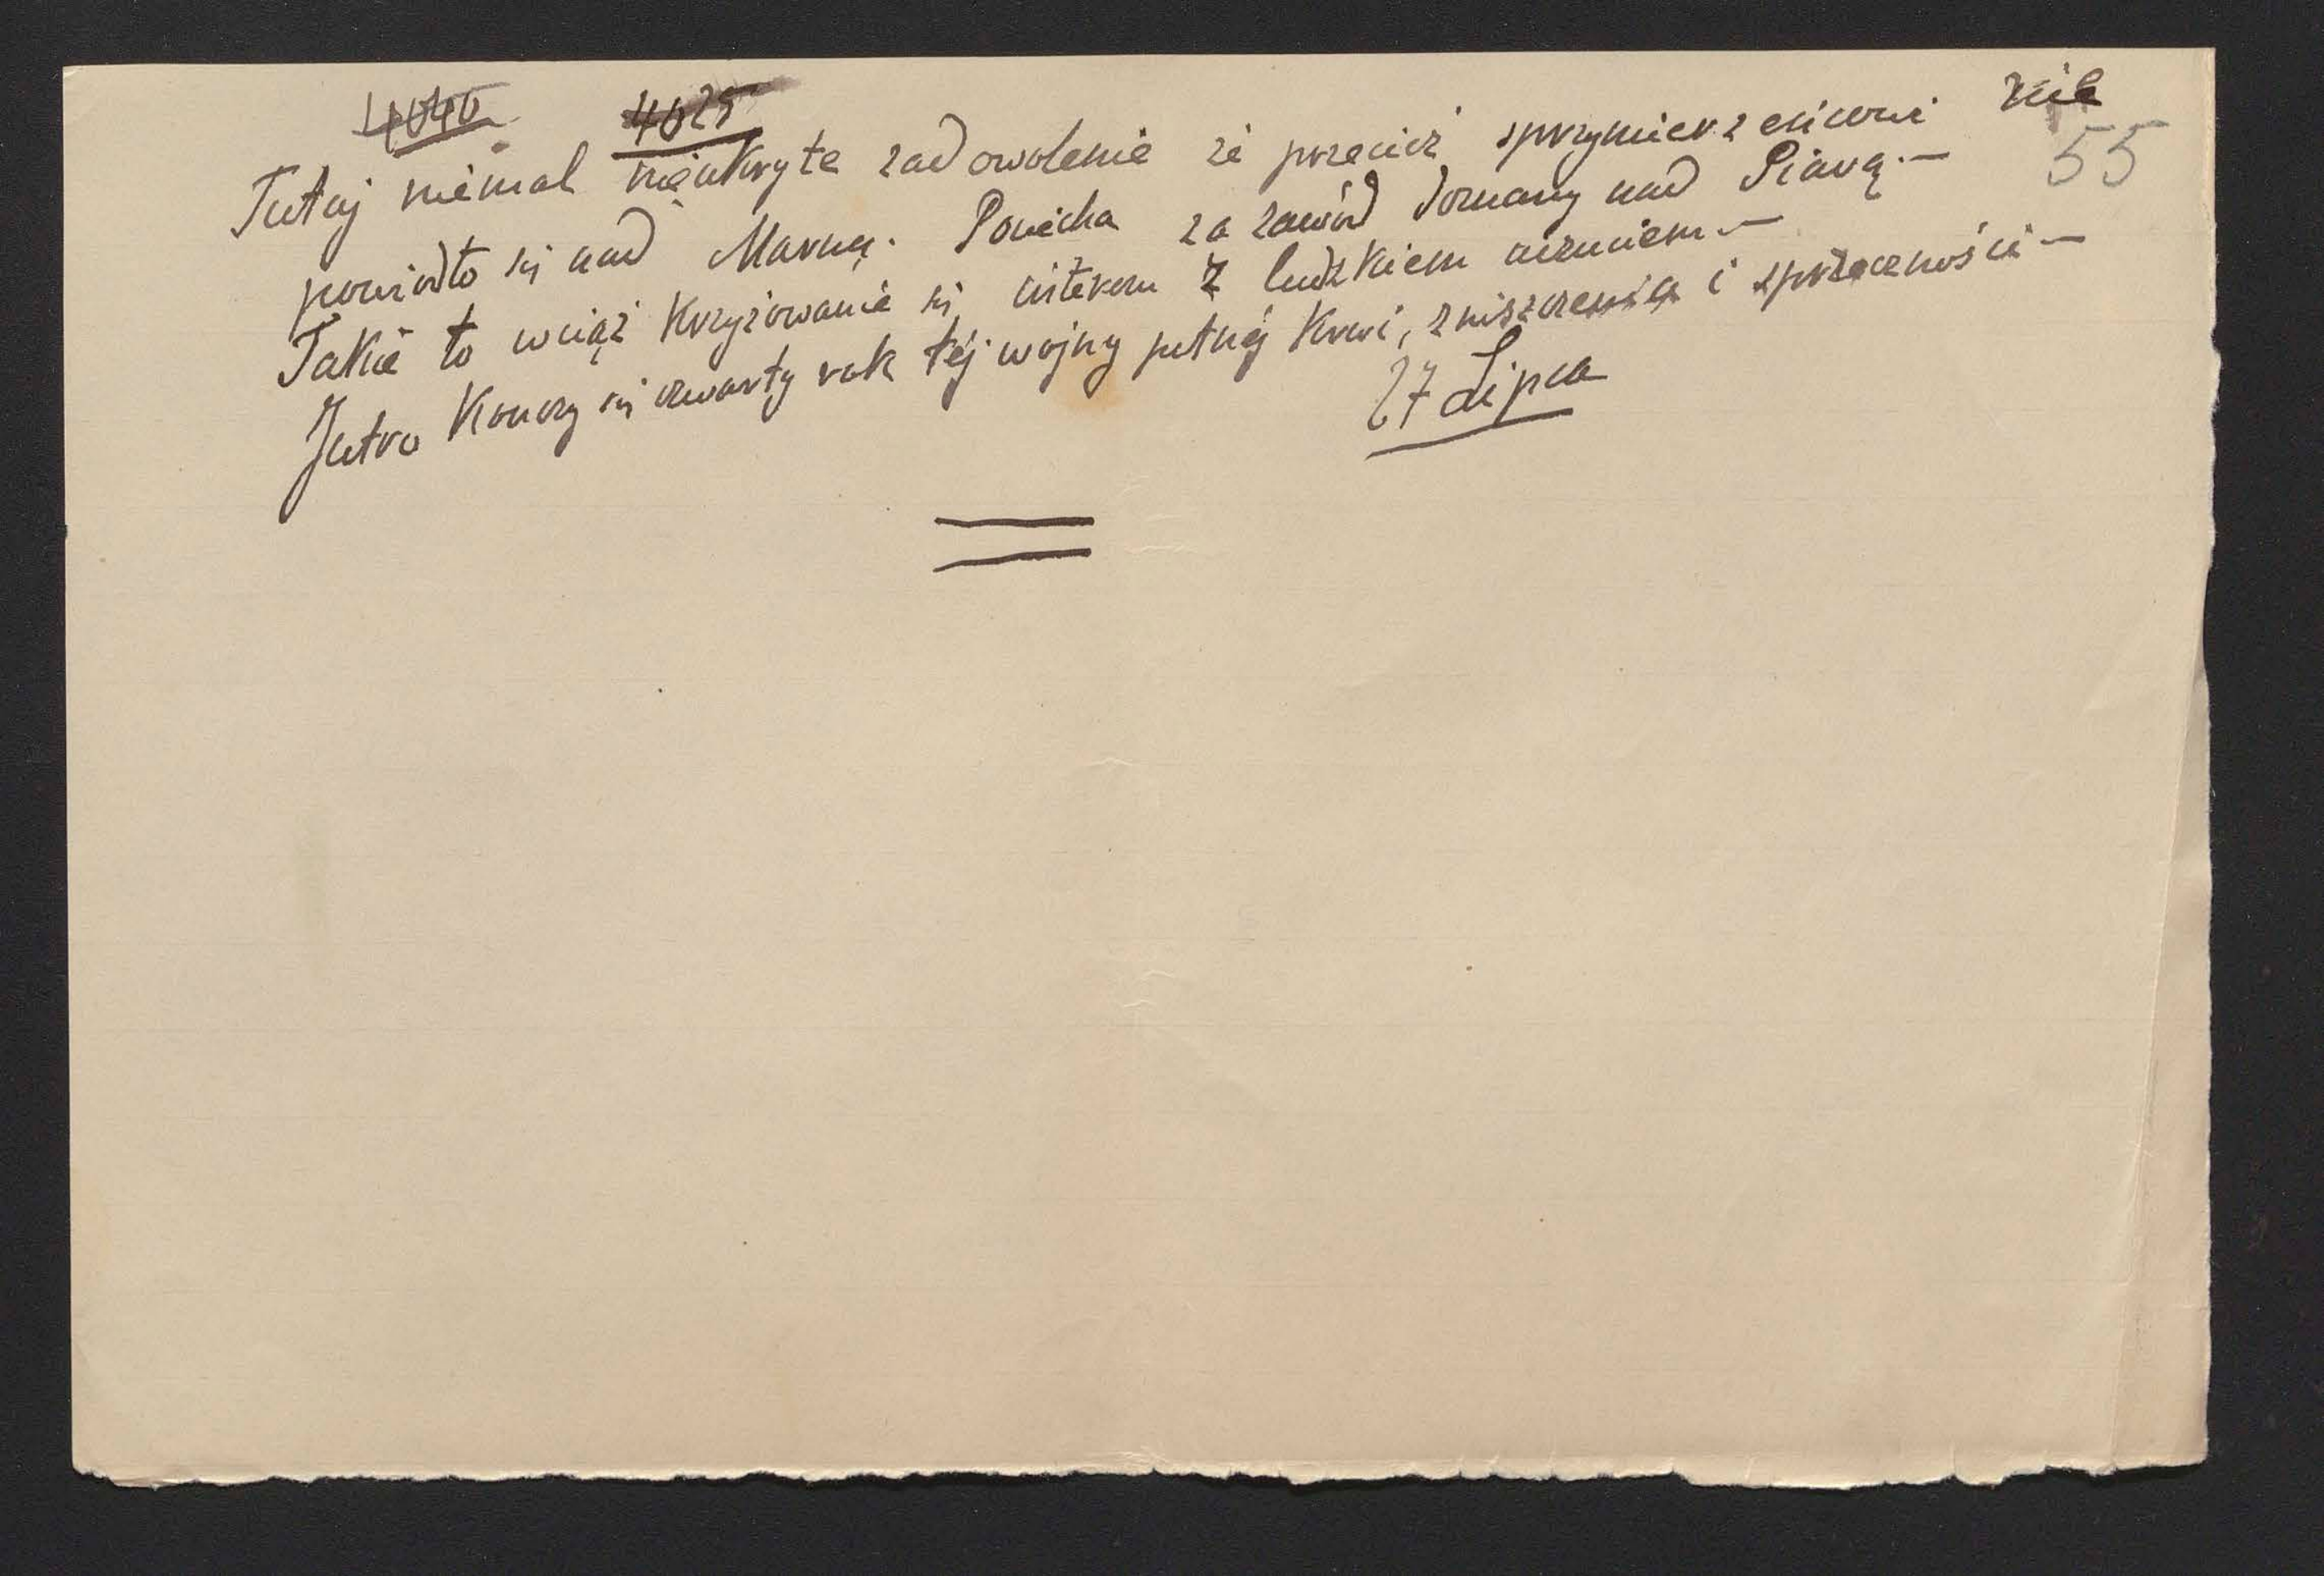 4040 4025
Tutaj niemal nieukryte zadowolenie że przecież sprzymierzeńcowi nie
55
powiodło się nad Marną. Pociecha za zawód doznany nad Piavą. —
Takie to wciąż krzyżowanie się interesu z ludzkiem uczuciem —
Jutro kończy się czwarty rok tej wojny pełnej krwi, zniszczenia i sprzeczności —
27 Lipca